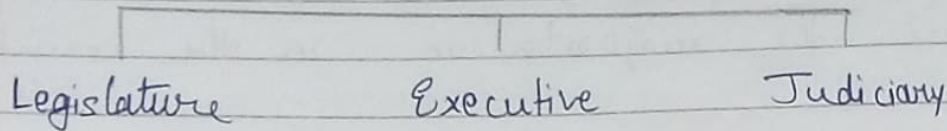 Legislature Executive Judiciary